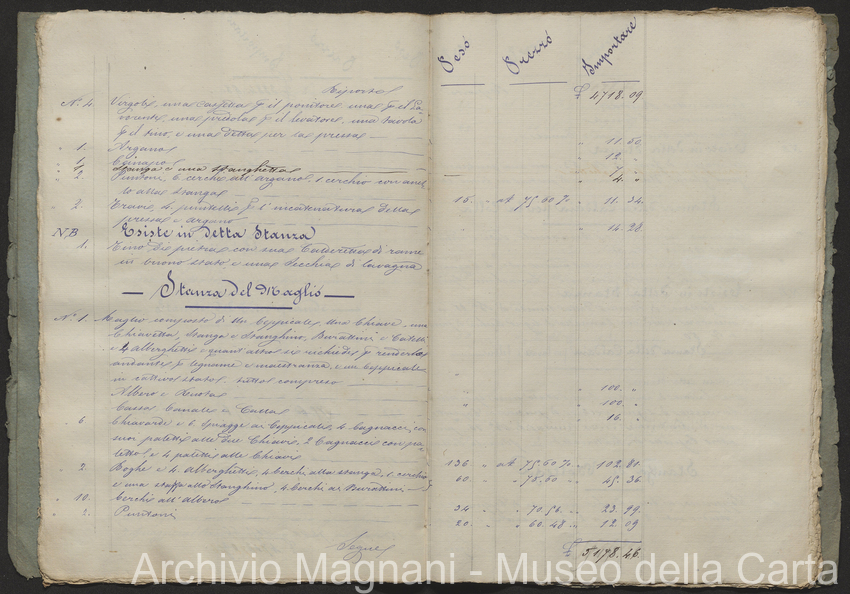 Peso Prezzo Importare
Riporto £ 4718.09
N. 4 Vergoli, una cassetta p il ponitore una p il
una predola p il levatore, una tavola
p il tino, e una detta per la pressa 11.50
" 1. Argano " 12. "
" 1. "
" 1. Stanga e una stanghetta " 4. "
" 2. Puntoni, 6 cerchi all'argano, 1 cerchio con
alla stanga 15. " at. 75.60 % " 11.34
" 2. Trave, 4 puntelli p l'incatenatura della
pressa e argano " 14.28
NB Esiste in detta Stanza
1. Tino di pietra con sua Calderetta di rame
in buono stato, e una Secchia di lavagna
— Stanza del Maglio —
N. 1. Maglio composto di Un Ceppicale, Una Chiave, una
Chiavetta, Stanga e Stanghino, Burattini e
e 4 alberghetti e quant'altro si richiede p renderlo
andante p legname e maestranza, e un Ceppicale
in cattivo stato. tutto compreso " 100. "
Albero e Ruota " 100. "
Cassa Canale e 16. "
" 6 Chiavarde e 6 ai Ceppicali, 4 Cagnacci con
suoi paletti alle due Chiavi, 2 Cagnacci con
paletto, e 4 paletti alle Chiavi 136 " at. 75.60 % " 102.81
" 2. Boghe e 4 alberghetti, 4 cerchi alla stanga, 1 cerchio
e una staffa allo Stanghino, 4 Cerchi ai Burattini 60 " 75.60 " 45.36
" 10. Cerchi all'albero 34 " 70.56 " 23.99
" 2. Puntoni 20. " 60.48 " 12.09
Segue £ 5,178.46
Archivio Magnani - Museo della Carta